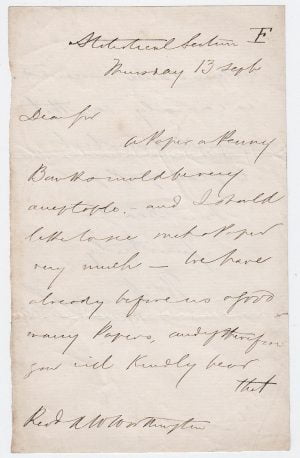 Statistical Section F
Thursday 13 Sept
Dear Sir
a Paper on Penny
Banks would be very
acceptable. - and I should
like to see such a Paper
very much - We have
already before us a good
many Papers, and if therefore
you will kindly bear
that
Revd A W Worthington